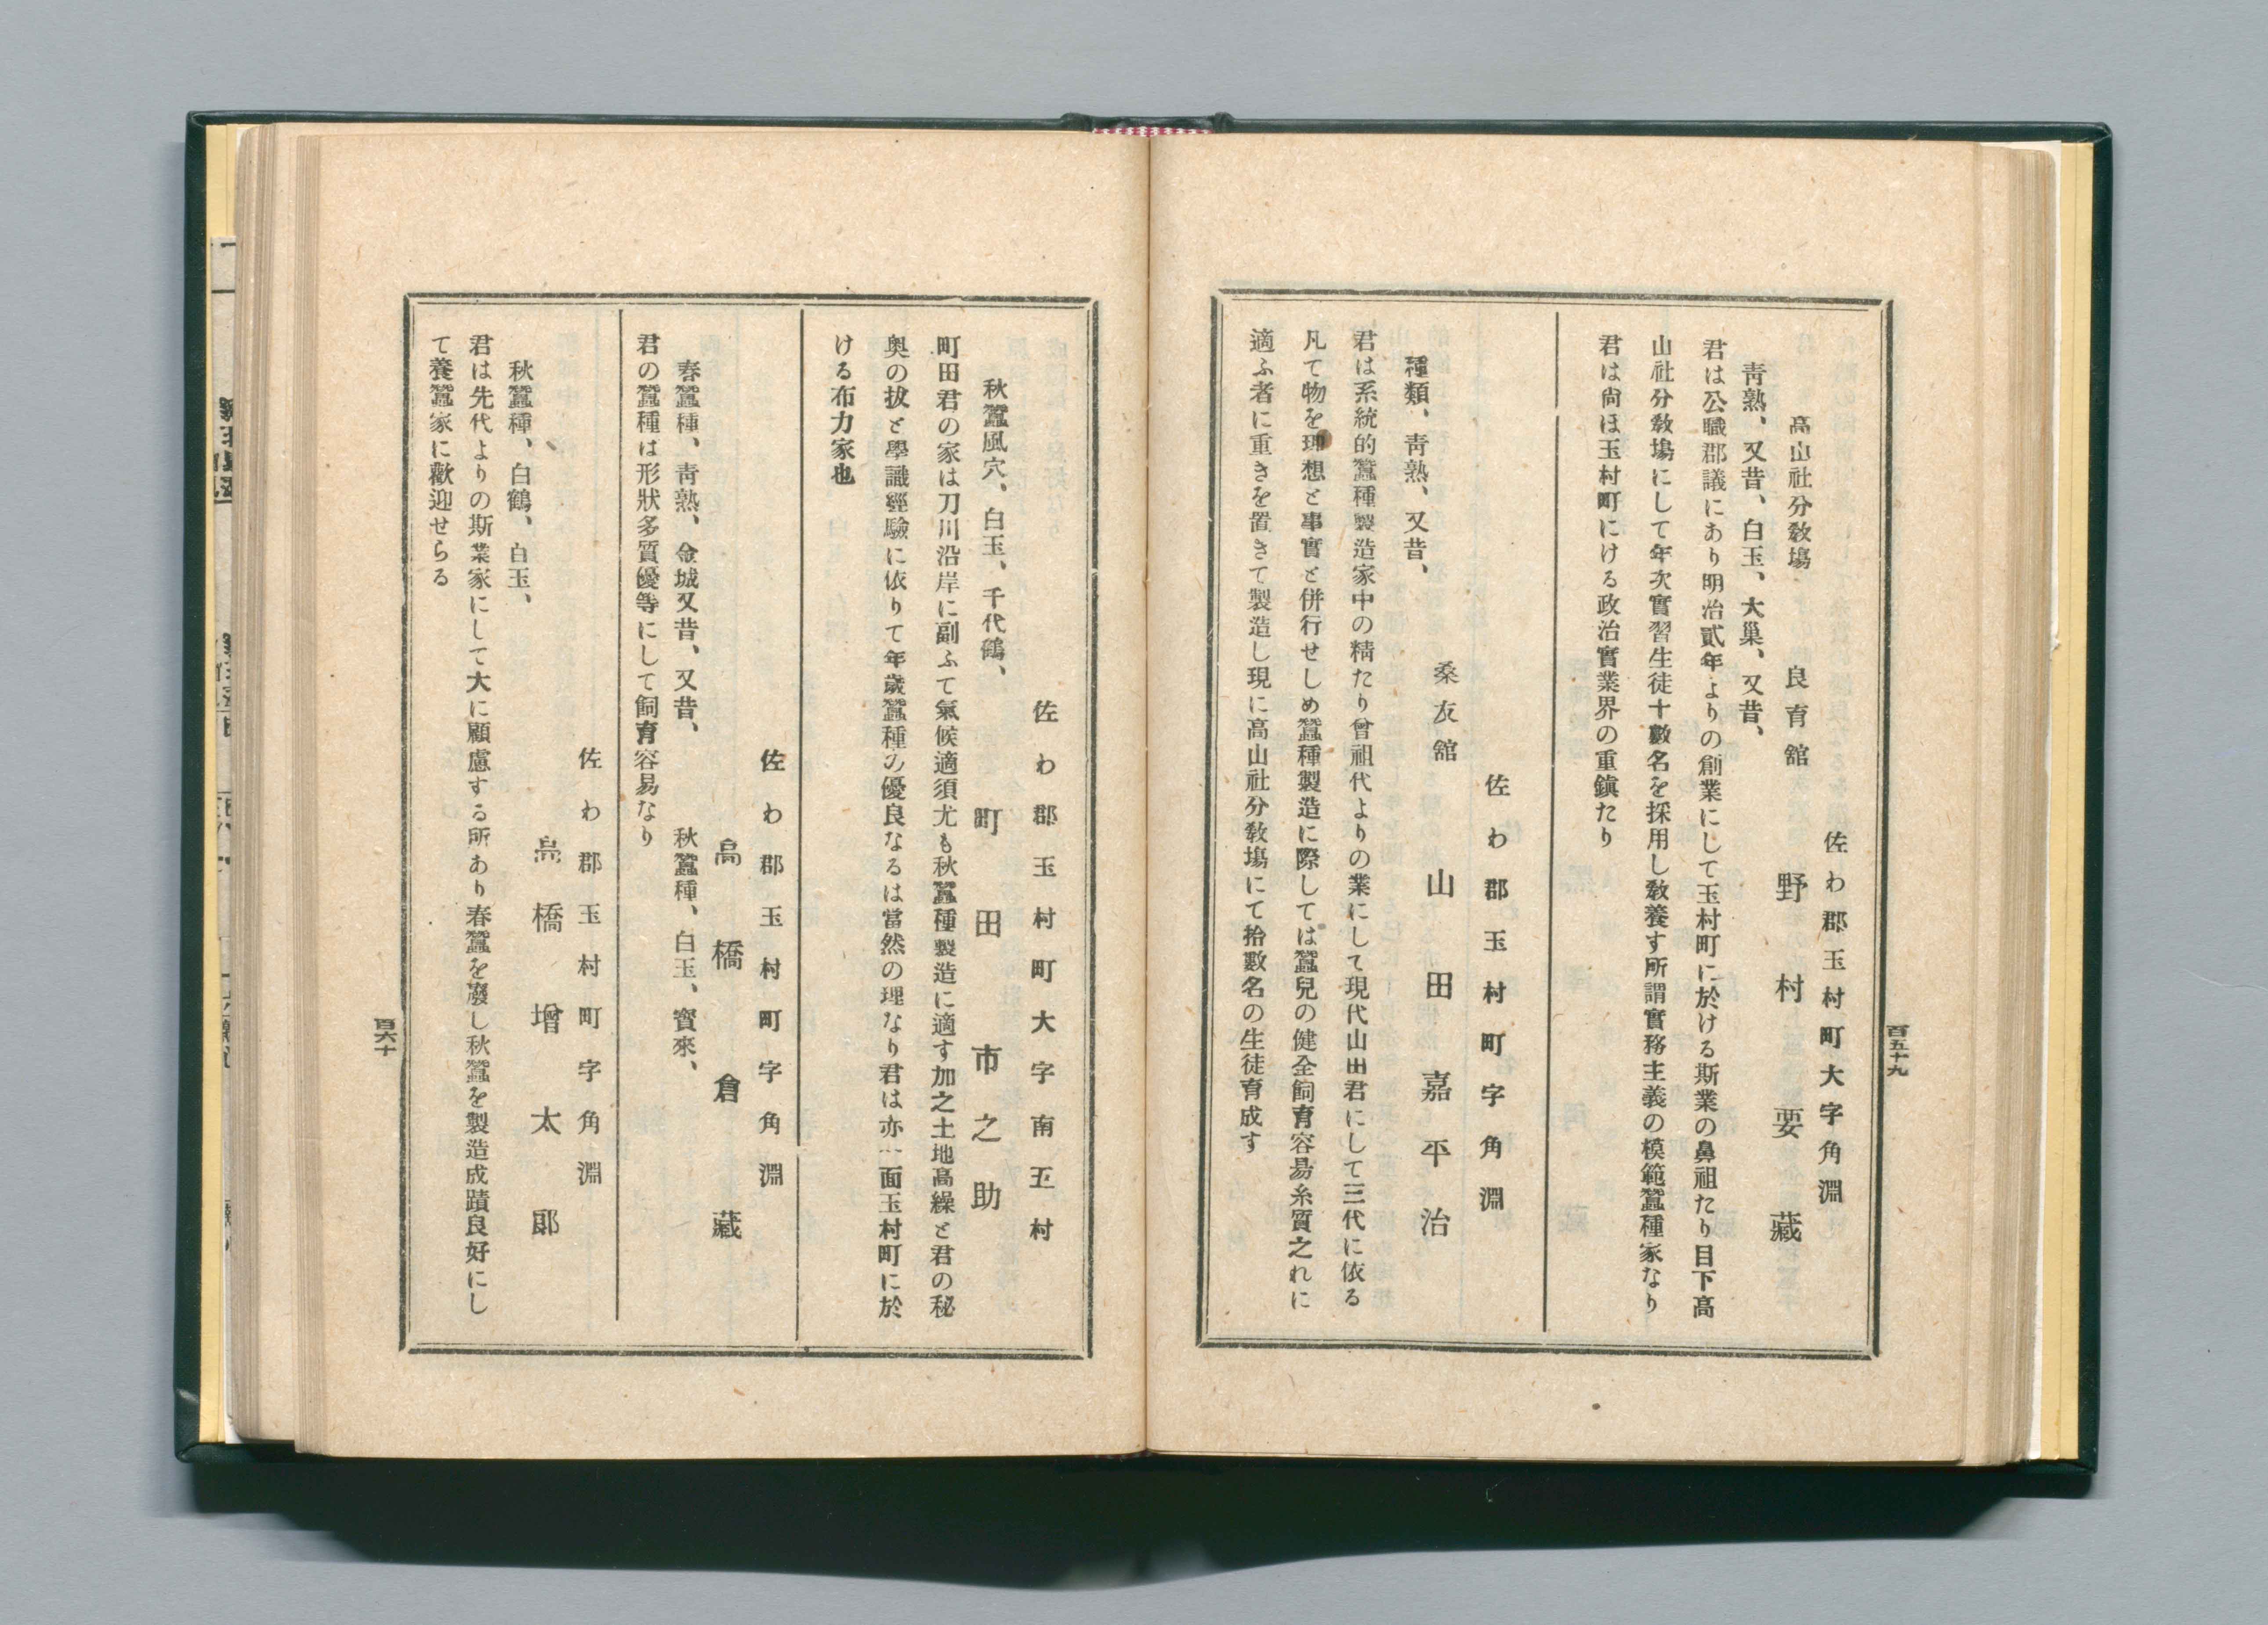 百五十九
佐わ郡玉村町大字角淵
高山社分敎塲 良育舘 野村要藏
靑熟、又昔、白玉、大巢、又昔、
君は公職郡議にあり明治貳年よりの創業にして玉村町に於ける斯業の鼻祖たり目下高
山社分敎塲にして年次實習生徒十數名を採用し敎養す所謂實務主義の模範蠶種家なり
君は尙ほ玉村町にける政治實業界の重鎭たり
佐わ郡玉村町字角淵
桑友舘 山田嘉平治
種類、靑熟、又昔、
君は系統的蠶種製造家中の精たり曾祖代よりの業にして現代山田君にして三代に依る
凡て物を理想と事實と併行せしめ蠶種製造に際しては蠶兒の健全飼育容易糸質之れに
適ふ者に重きを置きて製造し現に高山社分敎塲にて拾數名の生徒育成す
佐わ郡玉村町大字南玉村
町田市之助
秋蠶風穴、白玉、千代鶴、
町田君の家は刀川沿岸に副ふて氣候適須尤も秋蠶種製造に適す加之土地高繰と君の秘
奥の拔と學識經驗に依りて年歲蠶種の優良なるは當然の理なり君は亦一面玉村町に於
ける布力家也
佐わ郡玉村町字角淵
高橋倉藏
春蠶種、靑熟、金城又昔、又昔、 秋蠶種、白玉、寳來、
君の蠶種は形狀多質優等にして飼育容易なり
佐わ郡玉村町字角淵
高橋增太郞
秋蠶種、白鶴、白玉、
君は先代よりの斯業家にして大に顧慮する所あり春蠶を廢し秋蠶を製造成蹟良好にし
て養蠶家に歡迎せらる
百六十